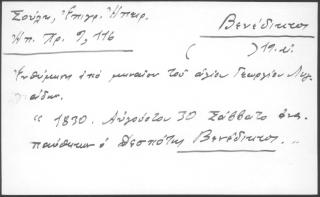 Σούλη, Ἐπιγρ. Ἠπειρ.
Βενέδικτος
Ἠπ. Χρ. 9, 116
( ) 19. αἰ.
Ἐνθύμηση ἀπὸ μηναῖον τοῦ ἁγίου Γεωργίου
" 1830. Αὐγούστου 30 Σάββατο ἀνε-
παύθηκεν ὁ Δεσπότης Βενέδικτος. "